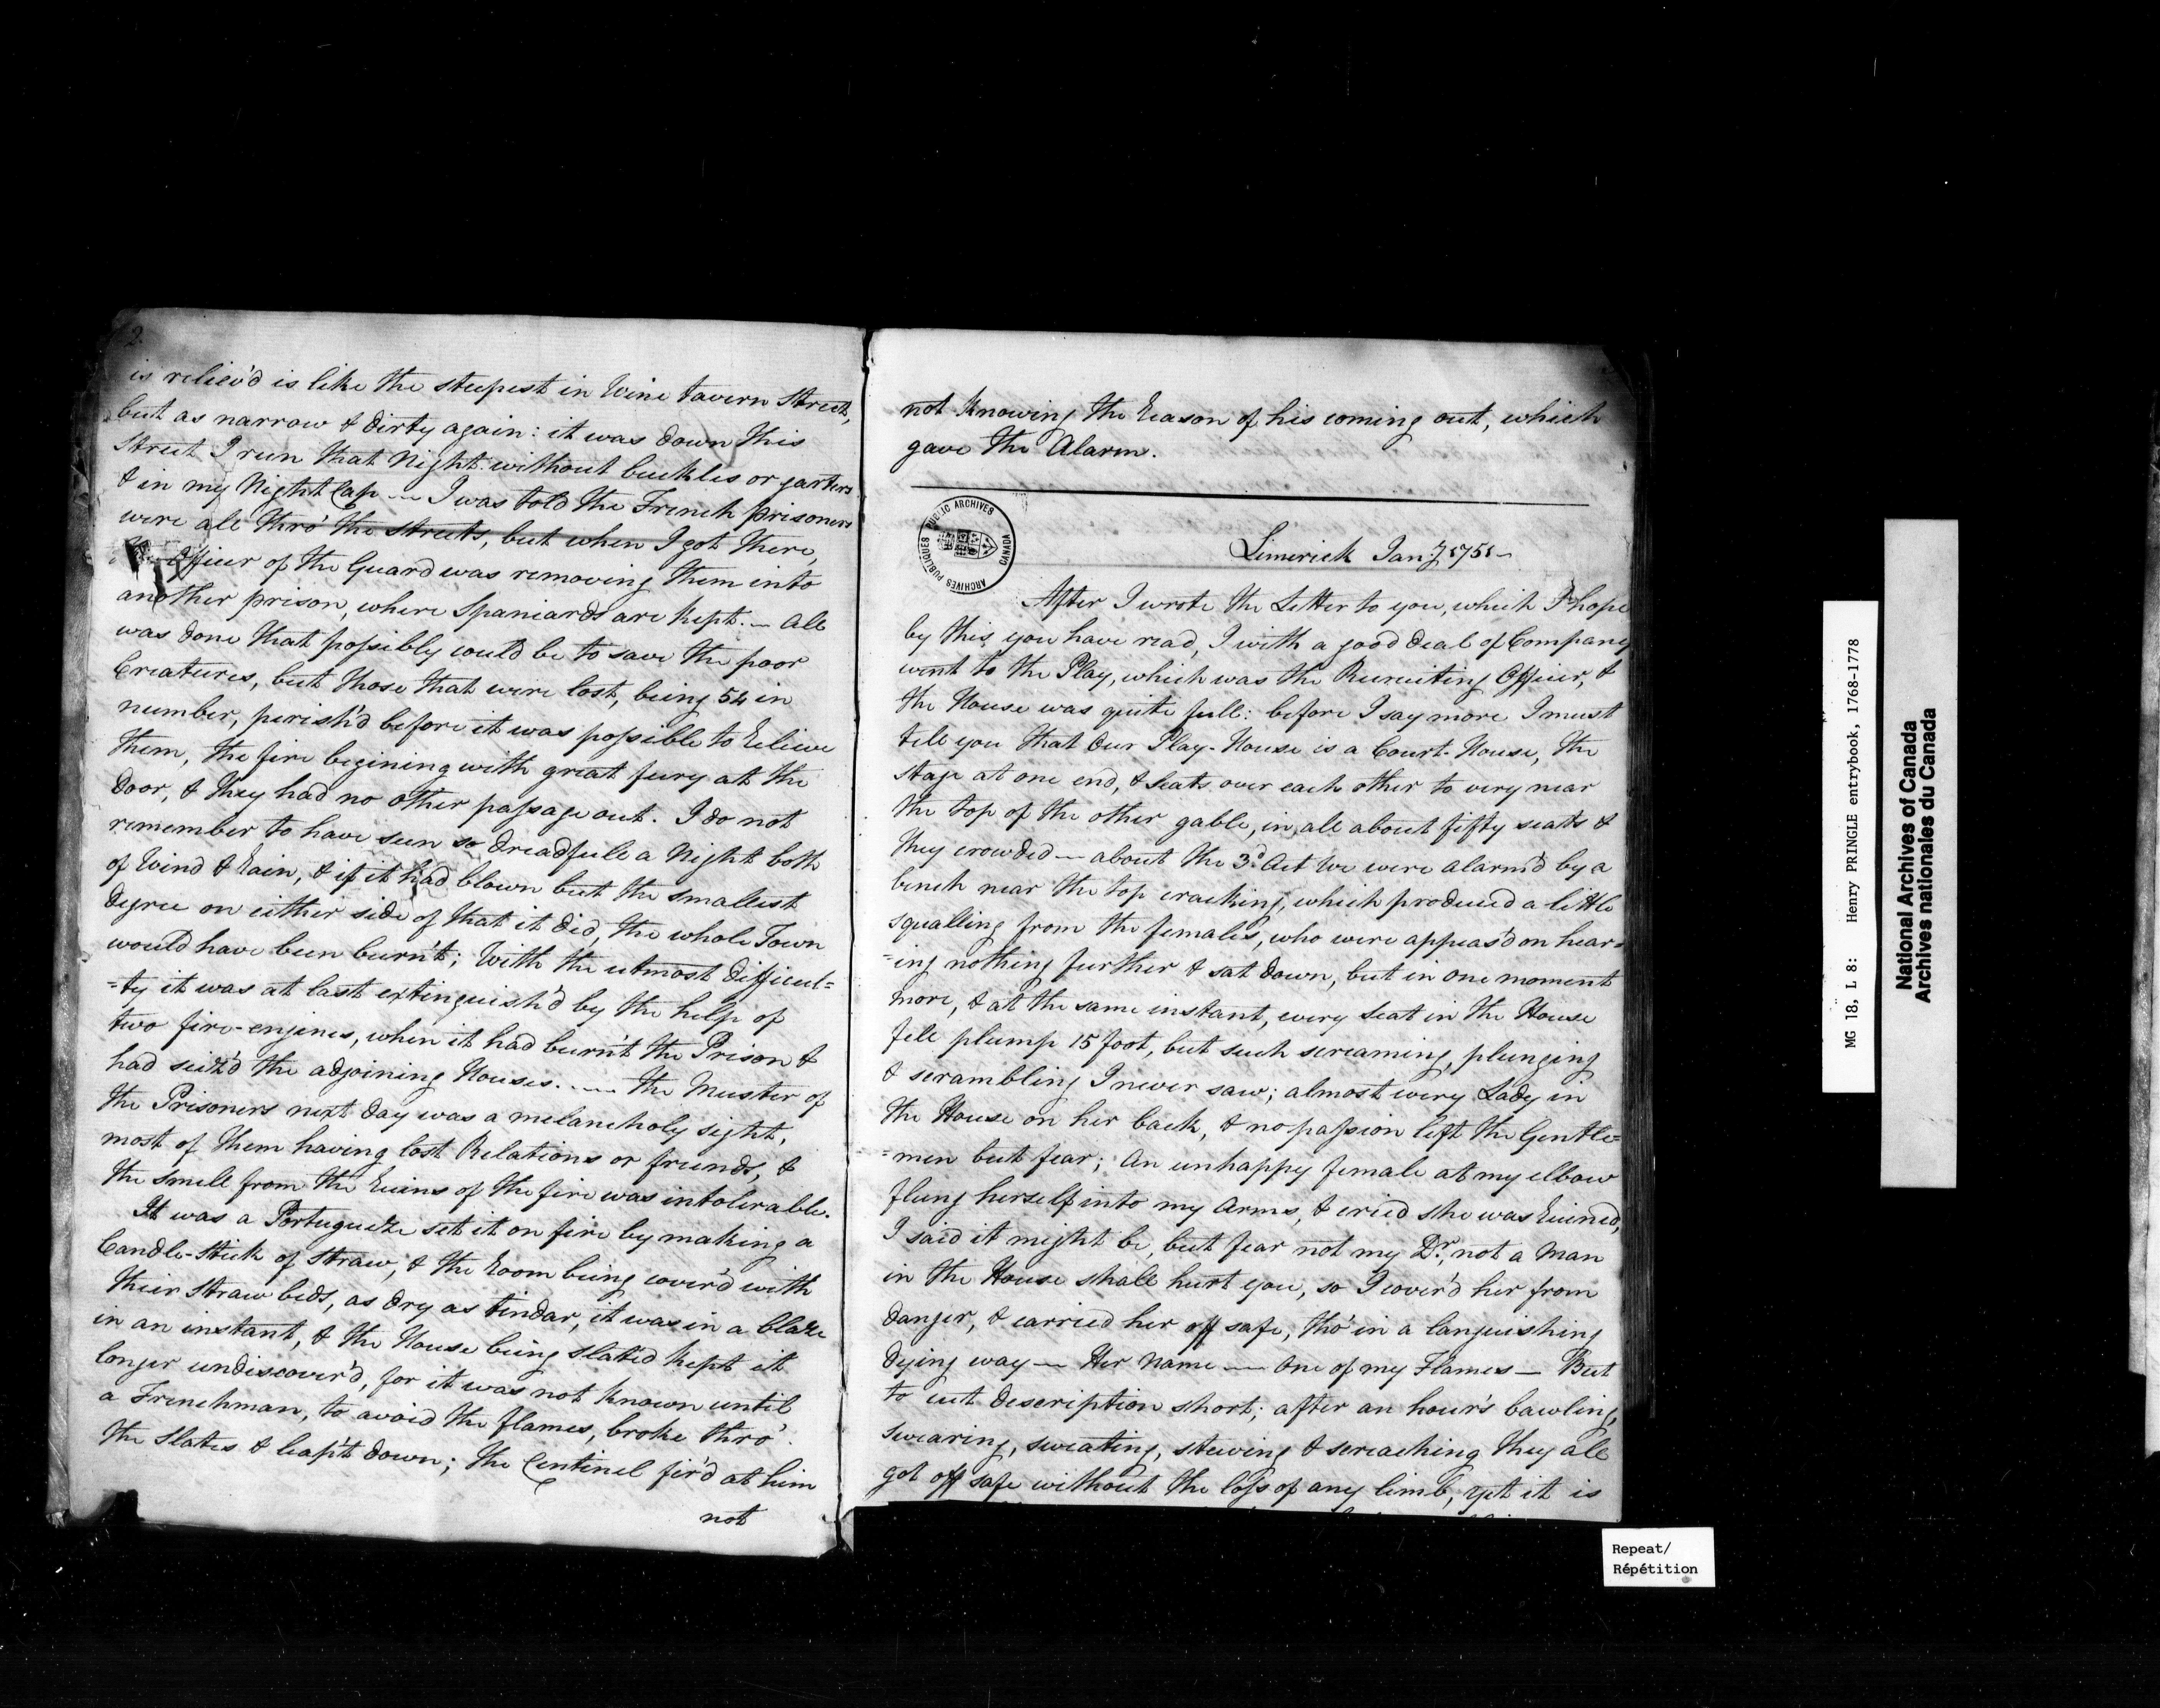 2.
is reliev'd is like the steepest in Wine tavern Street,
but as narrow & dirty again: it was down this
Street I run that Night without buckles or garters
& in my Night Cap — I was told the French prisoners
were all thro' the streets, but when I got there,
the Officer of the Guard was removing them into
another prison, where Spaniards are kept. — All
was done that possibly could be to save the poor
Creatures, but those that were lost, being 54 in
number, perish'd before it was possible to Relieve
them, the fire begining with great fury att the
door, & they had no other passage out. I do not
remember to have seen so dreadfull a Night both
of Wind & Rain, & if it had blown but the smallest
degree on either side of that it did, the whole Town
would have been burn't; With the utmost difficul=
=ty it was at last extinguish'd by the help of
two fire-engines, when it had burn't the Prison &
had seiz'd the adjoining Houses. — The Muster of
the Prisoners next day was a melancholy sight,
most of them having lost Relations or friends, &
the smell from the Ruins of the fire was intolerable.
It was a Portugueze set it on fire by making a
Candle-Stick of Straw, & the Room being cover'd with
their Straw beds, as dry as tindar, it was in a blaze
in an instant, & the House being slated kept it
longer undiscover'd, for it was not known until
a Frenchman, to avoid the flames, broke thro'
the slates & leap't down; the Centinel fir'd at him
not
not knowing the Reason of his coming out, which
gave the Alarm.
PUBLIC ARCHIVES
ARCHIVES PUBLIQUES
CANADA
Limerick Jan:y 1758 —
After I wrote the Letter to you, which I hope
by this you have read, I with a good deal of Company
went to the Play, which was the Recruiting Officer, &
the House was quite full: before I say more I must
tell you that Our Play-House is a Court-House, the
stage at one end, & seats over each other to very near
the top of the other gable, in all about fifty seats &
they crowded — about the 3d Act We were alarm'd by a
bench near the top cracking, which produced a little
squalling from the females, who were appeas'd on hear=
=ing nothing further & sat down, but in one moment
more, & at the same instant, every seat in the House
fell plump 15 foot, but such screaming, plunging
& scrambling I never saw; almost every Lady in
the House on her back, & no passion left the Gentle=
=men but fear; An unhappy female at my elbow
flung herself into my Arms, & cried she was Ruined,
I said it might be, but fear not my Dr, not a Man
in the House shall hurt you, so I cover'd her from
danger, & carried her off safe, tho' in a languishing
dying way — Her Name — One of my Flames — But
to cut description short; after an hour's bawling,
swearing, sweating, stewing & screaching they all
got off safe without the loss of any limb, yet it is
MG 18, L 8: Henry PRINGLE entrybook, 1768-1778
National Archives of Canada
Archives nationales du Canada
Repeat/
Répétition